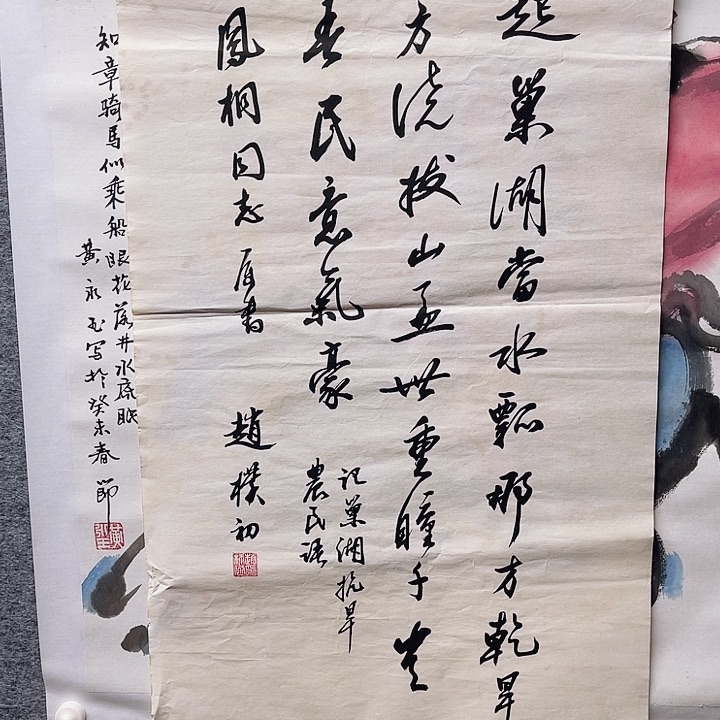 起巢湖當水瓢那方乾旱
方澆拔山盖世重瞳子豈
吾民意氣豪
記巢湖抗旱
農民語
鳳桐同志屬書
趙樸初
知章騎馬似乘船眼花落井水底眠
黃永玉写於癸未春節